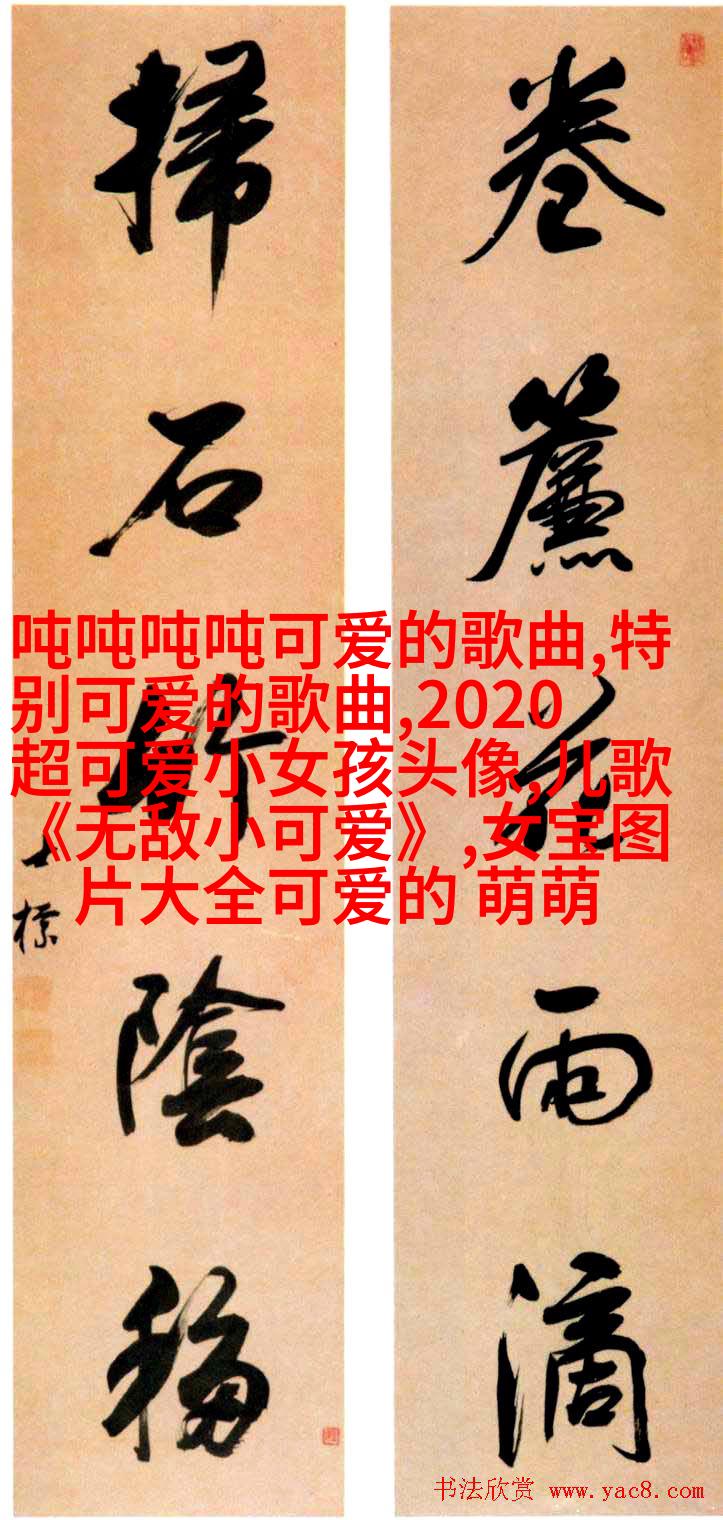 卷簾花雨滴
掃石竹陰移
士標
吨吨吨吨可爱的歌曲,特
别可爱的歌曲,2020
超可爱小女孩头像,儿歌
《无敌小可爱》,女宝图
片大全可爱的 萌萌
书法欣赏 www.yac8.com